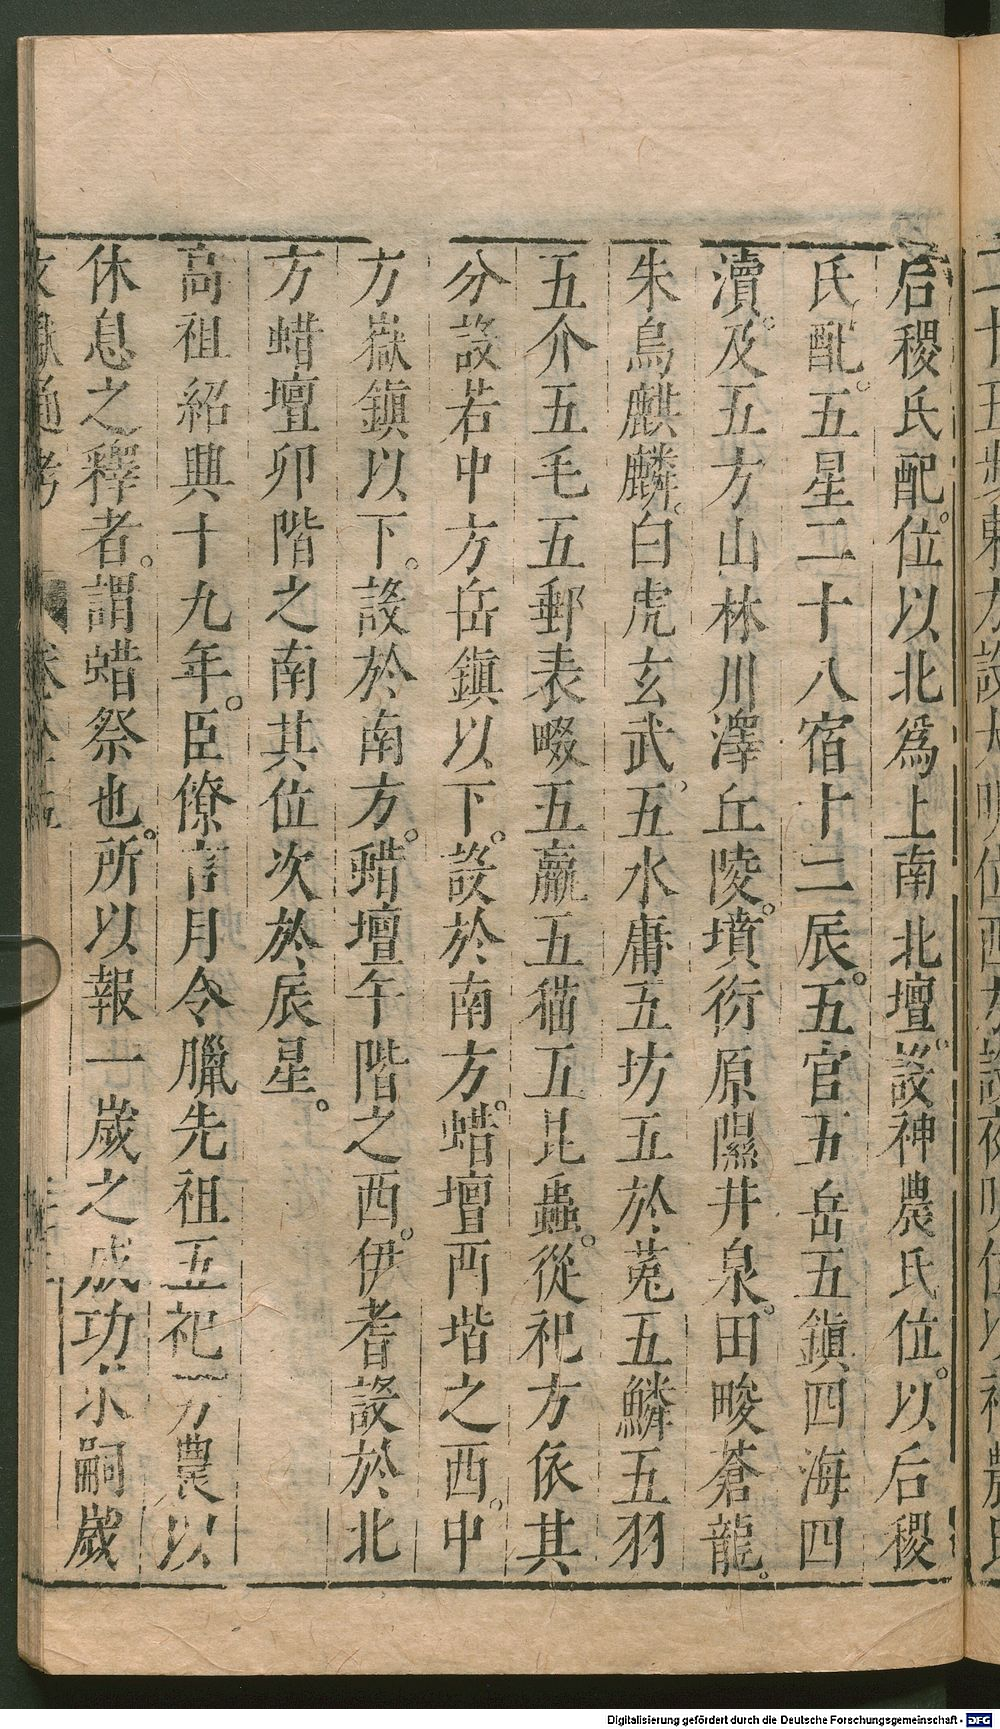 后稷氏配。位以北爲上南北壇。設神農氏位。以后稷
氏配。五星二十八宿十二辰。五官五岳五鎭四海四
瀆。及五方山林川澤丘陵。墳衍原隰井泉。田畯蒼龍。
朱鳥麒麟。白虎玄武、五水庸五坊五於菟五鱗五羽
五介五毛五郵表畷五臝五猫五昆蟲。從祀方依其
分設若中方岳鎭以下。設於南方。蜡壇酉堦之西。中
方嶽鎭以下。設於南方。蜡壇午階之西。伊耆設於北
方蜡壇卯階之南其位次於辰星。
高祖紹興十九年。臣僚言月令臘先祖五祀 農以
休息之釋者。謂蜡祭也。所以報一歲之成功 嗣歲
文獻通考 卷
Digitalisierung gefördert durch die Deutsche Forschungsgemeinschaft - DFG